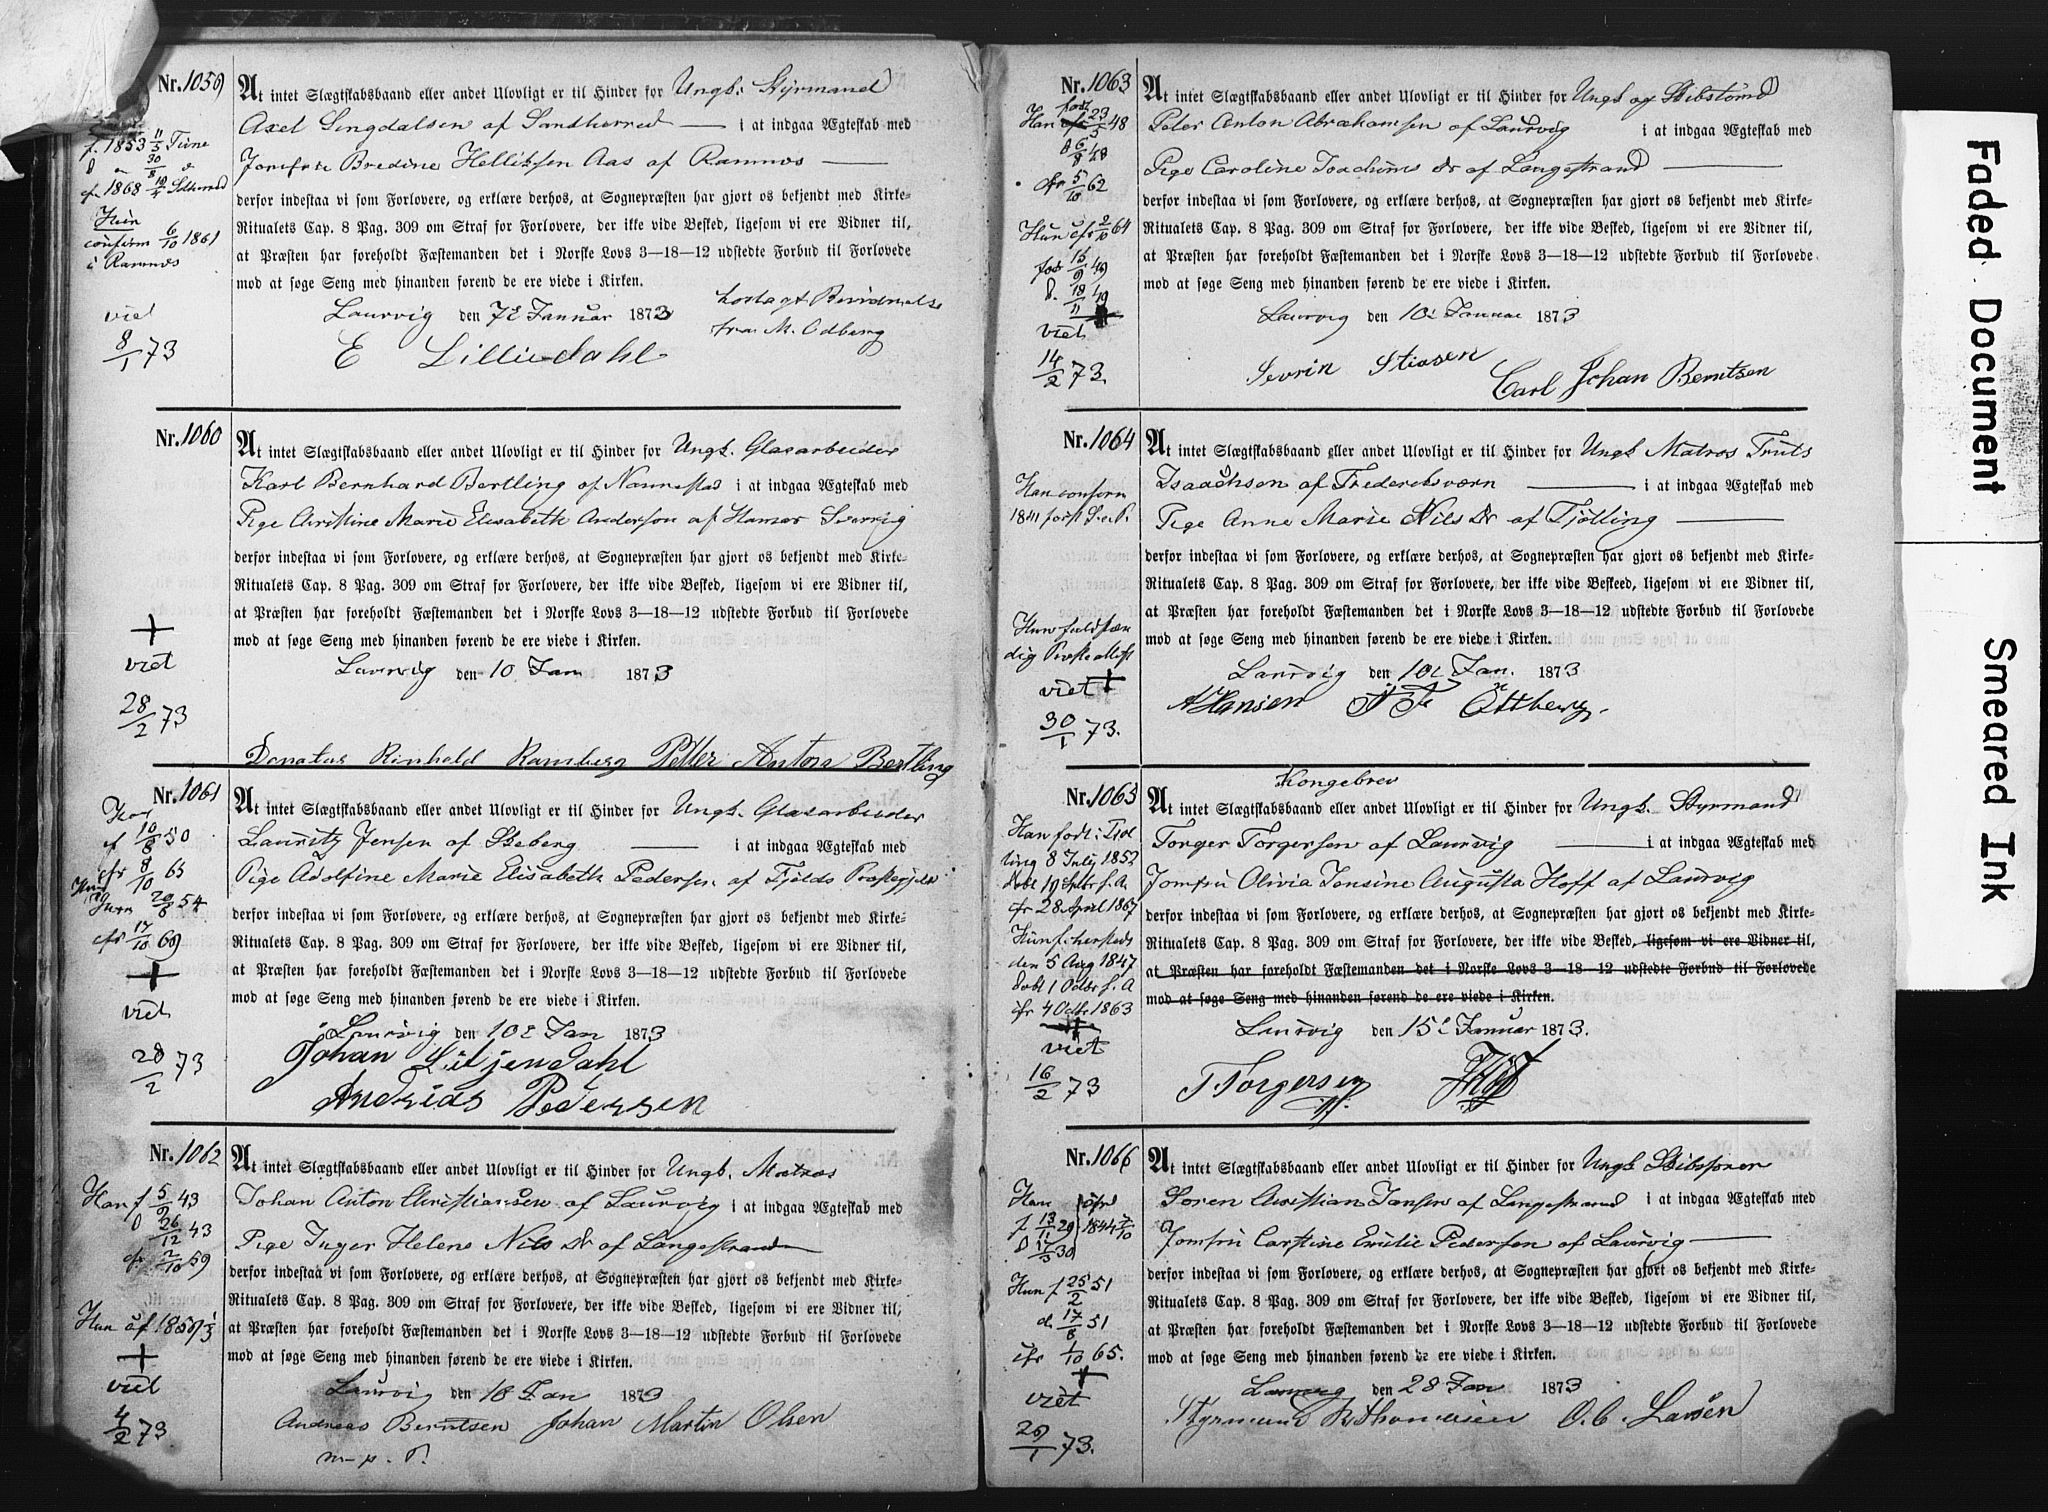 Nr. 1059
At intet Slægtskabsbaand eller andet Ulovligt er til Hinder for Ungk. Styrmand
Axel Lingdalsen af Sandherred i at indgaa Ægteskab med
Jomfru Bredine Helliksen Aas af Ramnæs
derfor indestaa vi som Forlovere, og erklære derhos, at Sognepræsten har gjort os bekjendt med Kirke-
Ritualets Cap. 8 Pag. 309 om Straf for Forlovere, der ikke vide Besked, ligesom vi ere Vidner til,
at Præsten har foreholdt Fæstemanden det i Norske Lovs 3—18—12 udstedte Forbud til Forlovede
mod at søge Seng med hinanden førend de ere viede i Kirken.
Laurvig den 7e Januar 1873
fra M. Odberg
E Lilliedahl
f. 1853 11/5
30/8
1868
Hun
confirm 6/10 1861
i Ramnæs
viet
8/1 73
Nr. 1060
At intet Slægtskabsbaand eller andet Ulovligt er til Hinder for Ungk. Glasarbeider
Karl Bernhard Bertling af Nannestad i at indgaa Ægteskab med
Pige Christine Marie Elisabeth Anderson af Hamar
derfor indestaa vi som Forlovere, og erklære derhos, at Sognepræsten har gjort os bekjendt med Kirke-
Ritualets Cap. 8 Pag. 309 om Straf for Forlovere, der ikke vide Besked, ligesom vi ere Vidner til,
at Præsten har foreholdt Fæstemanden det i Norske Lovs 3—18—12 udstedte Forbud til Forlovede
mod at søge Seng med hinanden førend de ere viede i Kirken.
Laurvig den 10 Jan 1873
Donatus Rinhold Ramberg Petter Anton Bertling
+
viet
28/2 73
Nr. 1061
At intet Slægtskabsbaand eller andet Ulovligt er til Hinder for Ungk. Glasarbeider
Lauritz Jensen af Skeberg i at indgaa Ægteskab med
Pige Adolfine Marie Elisabeth Pedersen af Fjelds Præstegjeld
derfor indestaa vi som Forlovere, og erklære derhos, at Sognepræsten har gjort os bekjendt med Kirke-
Ritualets Cap. 8 Pag. 309 om Straf for Forlovere, der ikke vide Besked, ligesom vi ere Vidner til,
at Præsten har foreholdt Fæstemanden det i Norske Lovs 3—18—12 udstedte Forbud til Forlovede
mod at søge Seng med hinanden førend de ere viede i Kirken.
Laurvig den 10e Jan 1873
Johan Liljendahl
Andreas Pedersen
f 10/8 50
cfr 8/10 65
Hun 20/8 54
cfr 17/10 69
+
viet
28/2 73
Nr. 1062
At intet Slægtskabsbaand eller andet Ulovligt er til Hinder for Ungk. Matros
Johan Anton Christiansen af Laurvig i at indgaa Ægteskab med
Pige Inger Helene Nils Dr af Langestrand
derfor indestaa vi som Forlovere, og erklære derhos, at Sognepræsten har gjort os bekjendt med Kirke-
Ritualets Cap. 8 Pag. 309 om Straf for Forlovere, der ikke vide Besked, ligesom vi ere Vidner til,
at Præsten har foreholdt Fæstemanden det i Norske Lovs 3—18—12 udstedte Forbud til Forlovede
mod at søge Seng med hinanden førend de ere viede i Kirken.
Laurvig den 18 Jan 1873
Andreas Berntsen Johan Martin Olsen
m. p. P.
Han f 5/9 43
D 26/12 43
cfr 2/10 59
Hun cf 1859
+
viet
4/2 73
Nr. 1063
At intet Slægtskabsbaand eller andet Ulovligt er til Hinder for Ungk og Skibstømd
Peter Anton Abrahamsen af Laurvig i at indgaa Ægteskab med
Pige Caroline Joachims Dr af Langestrand
derfor indestaa vi som Forlovere, og erklære derhos, at Sognepræsten har gjort os bekjendt med Kirke-
Ritualets Cap. 8 Pag. 309 om Straf for Forlovere, der ikke vide Besked, ligesom vi ere Vidner til,
at Præsten har foreholdt Fæstemanden det i Norske Lovs 3—18—12 udstedte Forbud til Forlovede
mod at søge Seng med hinanden førend de ere viede i Kirken.
Laurvig den 10e Januar 1873
Sevrin Stiasen Carl Johan Berntsen
født
Han 23/5 48
D 6/8 48
cfr 5/10 62
Hun cfr 2/10 64
fød 15/9 49
d. 18/11 49
+
viet
14/2 73.
Nr. 1064
At intet Slægtskabsbaand eller andet Ulovligt er til Hinder for Ungk Matros Truls
Isaachsen af Frederiksværn i at indgaa Ægteskab med
Pige Anne Marie Nils Dr af Tjølling
derfor indestaa vi som Forlovere, og erklære derhos, at Sognepræsten har gjort os bekjendt med Kirke-
Ritualets Cap. 8 Pag. 309 om Straf for Forlovere, der ikke vide Beskeed, ligesom vi ere Vidner til,
at Præsten har foreholdt Fæstemanden det i Norske Lovs 3—18—12 udstedte Forbud til Forlovede
mod at søge Seng med hinanden førend de ere viede i Kirken.
Laurvig den 10e Jan. 1873
A Hansen Ottberg.
Han conform
1841
Hun fuldstæn
dig
viet +
30/1 73.
Nr. 1065
Kongebrev
At intet Slægtskabsbaand eller andet Ulovligt er til Hinder for Ungk. Styrmand
Torger Torgersen af Laurvig i at indgaa Ægteskab med
Jomfru Olivia Jensine Augusta Hoff af Laurvig
derfor indestaa vi som Forlovere, og erklære derhos, at Sognepræsten har gjort os bekjendt med Kirke-
Ritualets Cap. 8 Pag. 309 om Straf for Forlovere, der ikke vide Besked, ligesom vi ere Vidner til,
at Præsten har foreholdt Fæstemanden det i Norske Lovs 3—18—12 udstedte Forbud til Forlovede
mod at søge Seng med hinanden førend de ere viede i Kirken.
Laurvig den 15e Januar 1873.
T Torgersen
Han født i Tjøl
ling 8 July 1852
døbt 19 Septbr s. A.
cfr 28 April 1867
Hun f. hersteds
den 5 Aug 1847
Døbt 1 Octbr s. A
cfr 4 Octbr 1863
+
viet
16/2 73
Nr. 1066
At intet Slægtskabsbaand eller andet Ulovligt er til Hinder for Ungk Skibsfører
Søren Christian Jansen af Langestrand i at indgaa Ægteskab med
Jomfru Carstine Emilie Pedersen af Laurvig
derfor indestaa vi som Forlovere, og erklære derhos, at Sognepræsten har gjort os bekjendt med Kirke-
Ritualets Cap. 8 Pag. 309 om Straf for Forlovere, der ikke vide Besked, ligesom vi ere Vidner til,
at Præsten har foreholdt Fæstemanden det i Norske Lovs 3—18—12 udstedte Forbud til Forlovede
mod at søge Seng med hinanden førend de ere viede i Kirken.
Laurvig den 28 Jan 1873
Styrmand R Thomasen O. C. Larsen
Han
f 13/11 29
D 17/3 30
cfr 1844
Hun f 25/2 51
d. 17/8 51
cfr 1/10 65.
+
viet
29/1 73.
Faded Document
Smeared Ink